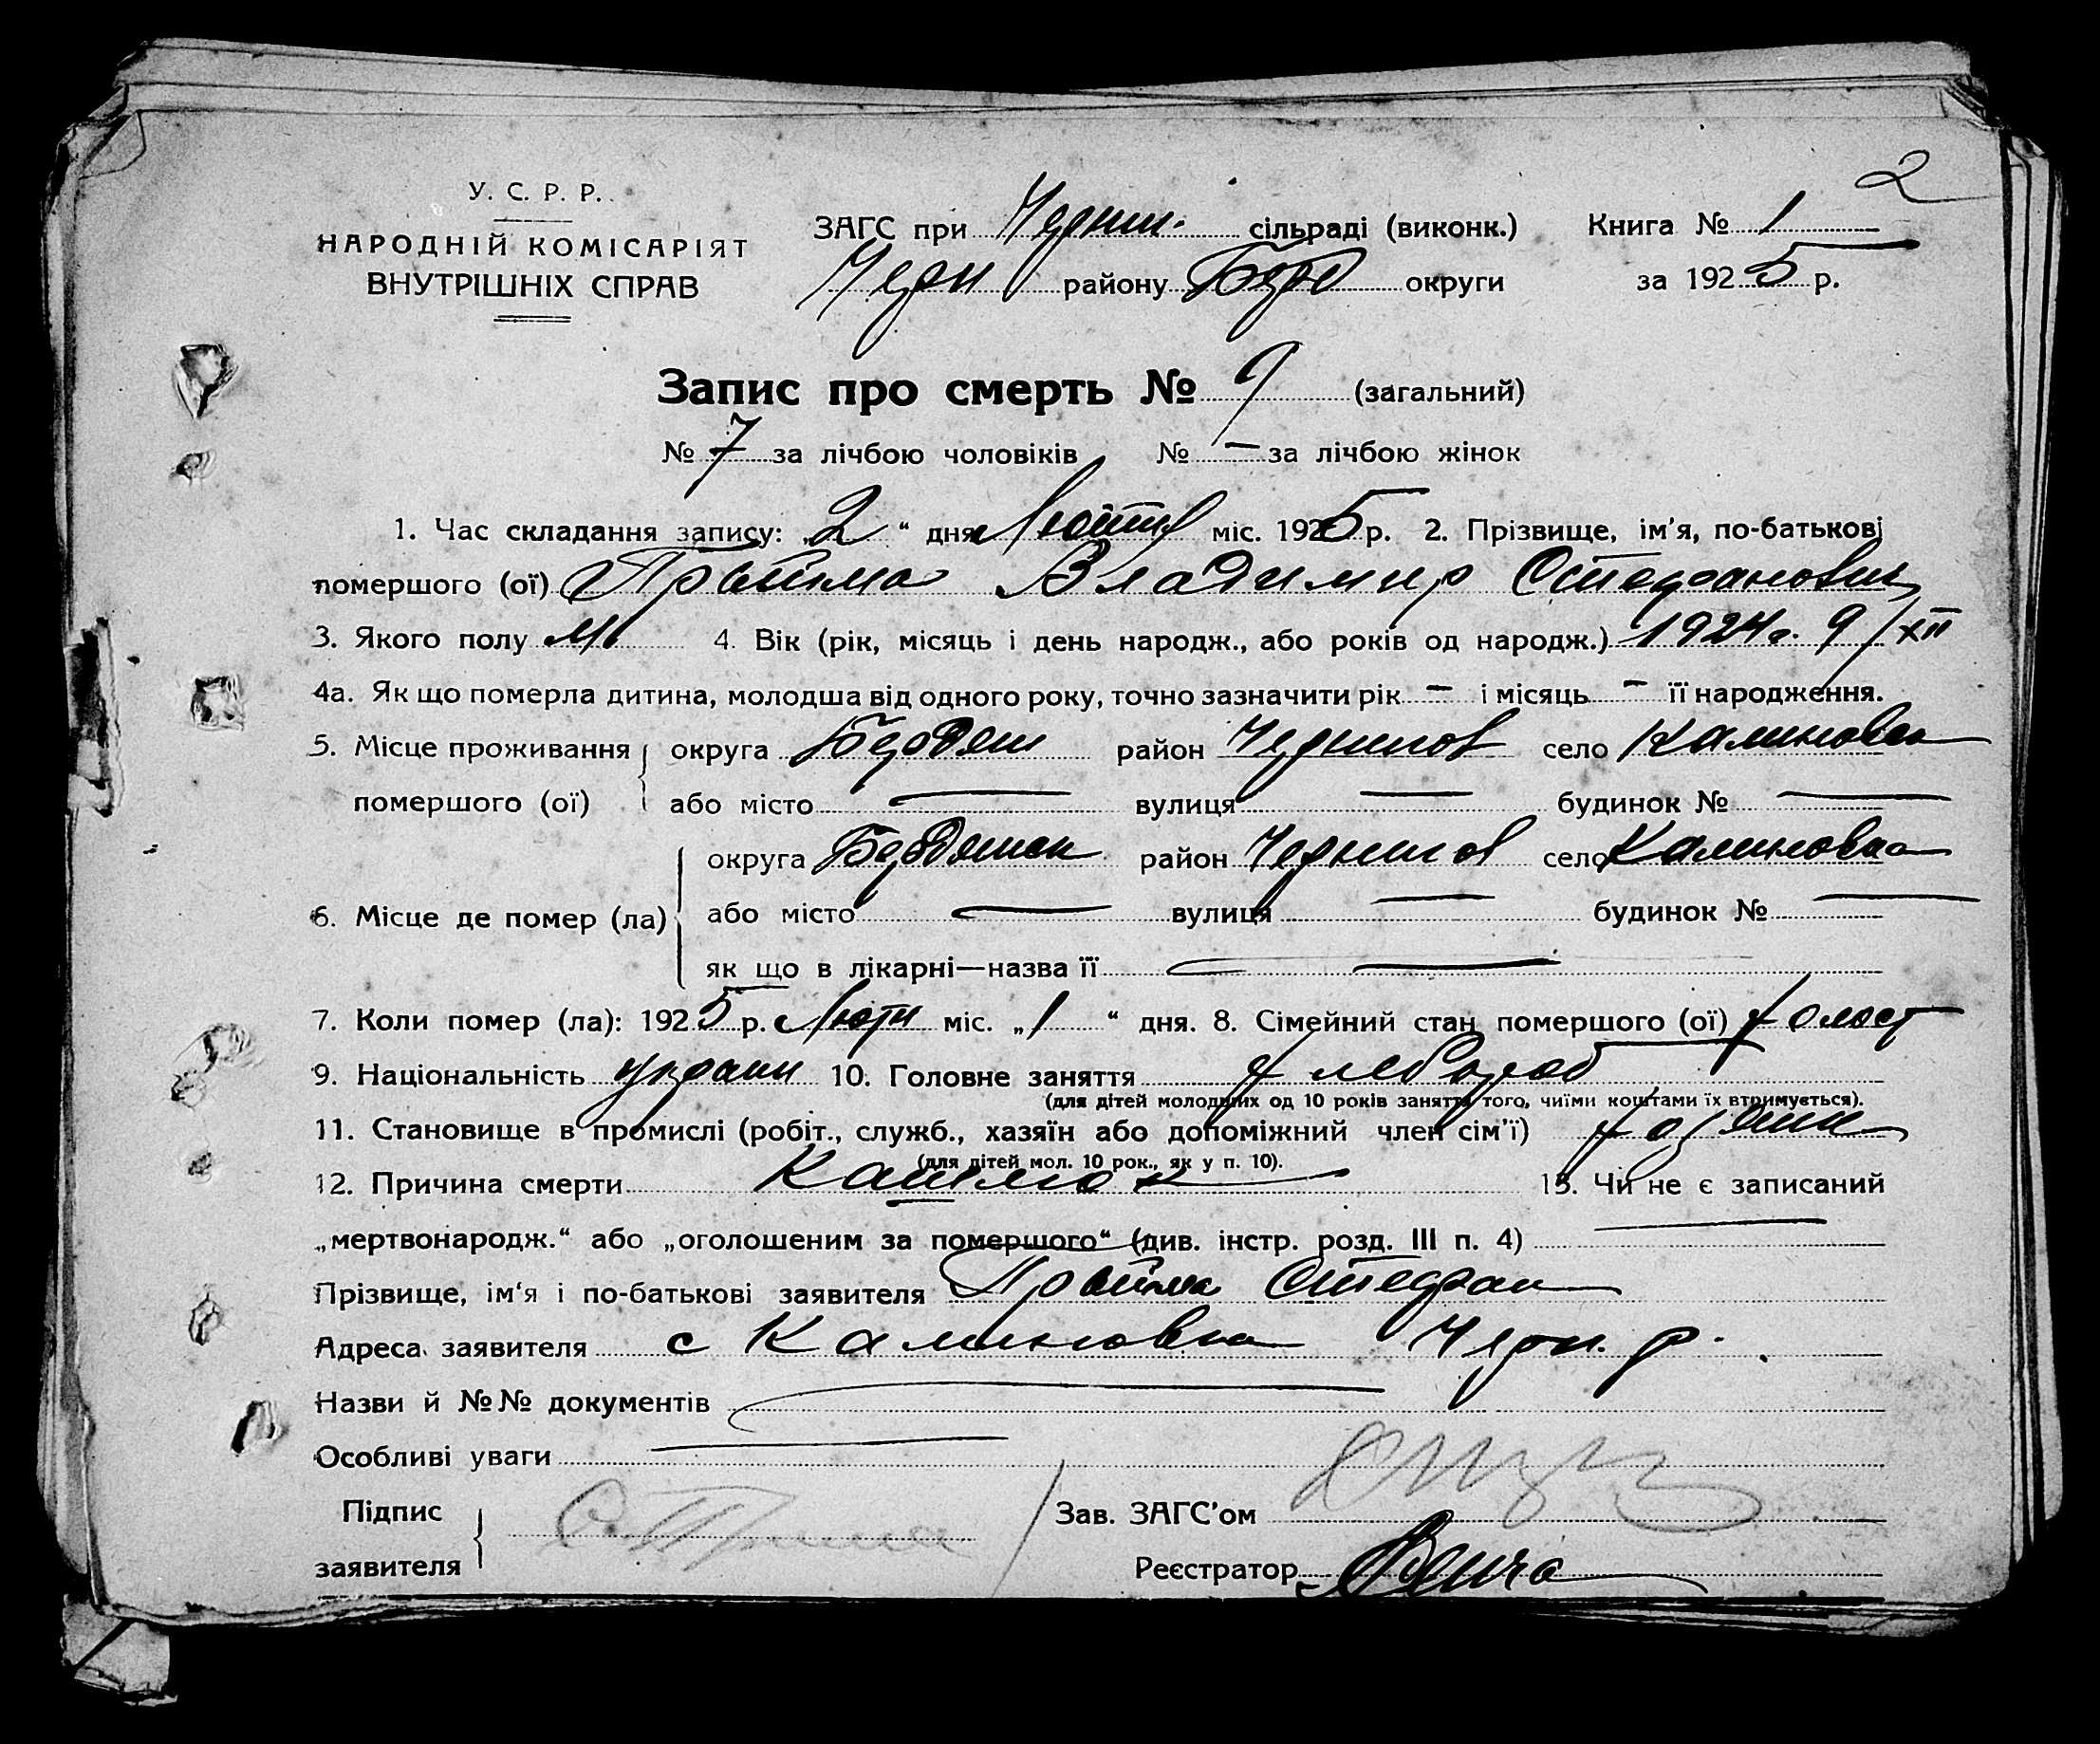 2
У. С. Р. Р.
НАРОДНІЙ КОМІСАРІЯТ
ВНУТРІШНІХ СПРАВ
ЗАГС при Черниг. сільраді (виконк.) Книга № 1
Черн району Берд округи за 1925 р.
Запис про смерть № 9 (загальний)
№ 7 за лічбою чоловіків № — за лічбою жінок
1. Час складання запису: „2“ дня міс. 1925 р. 2. Прізвище, ім'я, по-батькові
помершого (ої) Прийма Владимир Стефанович
3. Якого полу М 4. Вік (рік, місяць і день народж., або років од народж.) 1924 г. 9/XII
4а. Як що померла дитина, молодша від одного року, точно зазначити рік — і місяць — її народження.
5. Місце проживання округа Бердян район Чернигов село Калиновка
помершого (ої) або місто — вулиця — будинок №  —
округа Бердянск район Чернигов село Калиновка
6. Місце де помер (ла) або місто — вулиця — будинок № —
як що в лікарні—назва її —
7. Коли помер (ла): 1925 р. Лютн міс. „1“ дня. 8. Сімейний стан помершого (ої) холост
9. Національність украин 10. Головне заняття хлебороб
(для дітей молодших од 10 років заняття того, чиїми коштами їх втримується).
11. Становище в промислі (робіт., служб., хазяїн або допоміжний член сім'ї) хозяин
(для дітей мол. 10 рок., як у п. 10).
12. Причина смерти Кашлюк 13. Чи не є записаний
„мертвонародж.“ або „оголошеним за помершого“ (див. інстр. розд. III п. 4) —
Прізвище, ім'я і по-батькові заявителя Прийма Стефан
Адреса заявителя с Калиновка Черн. р.
Назви й №№ документів —
Особливі уваги —
Підпис
заявителя С. Прийма
Зав. ЗАГС'ом
Реєстратор